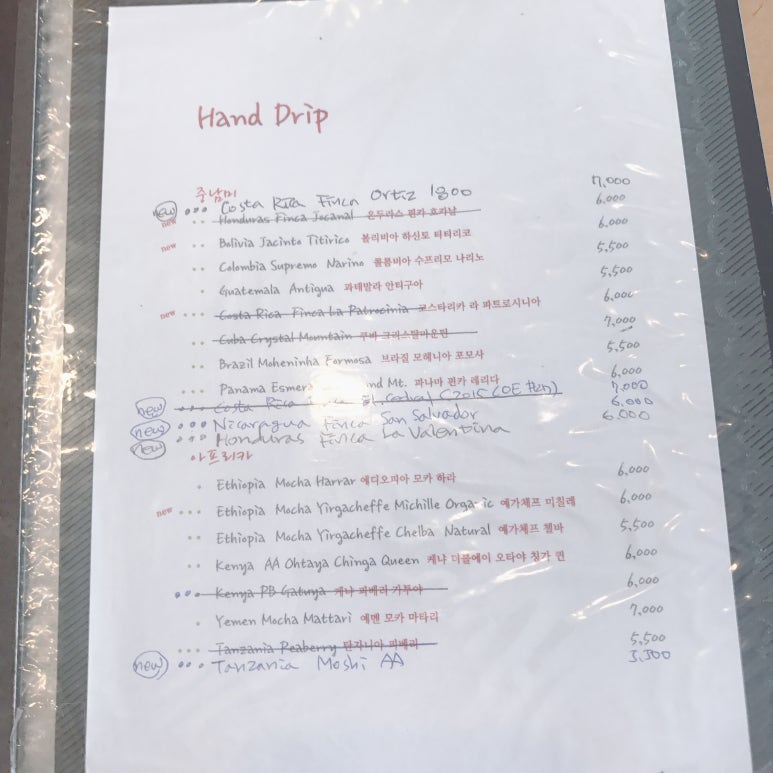 Hand Drip
중남미
new ••• Costa Rica Finca Ortiz 1800 7,000
new •• Honduras Finca Jocanal 온두라스 핀카 호카날 6,000
new •• Bolivia Jacinto Titirico 볼리비아 하신토 티타리코 6,000
•• Colombia Supremo Narino 콜롬비아 수프리모 나리노 5,500
• Guatemala Antigua 과테말라 안티구아 5,500
new ••• Costa Rica Finca La Patrocinia 코스타리카 라 파트로시니아 6,000
•• Cuba Crystal Mountain 쿠바 크리스탈마운틴 7,000
•• Brazil Moheninha Formosa 브라질 모헤니아 포모사 5,500
•• Panama Esmera nd Mt. 파나마 핀카 레리다 6,000
new ••• Costa Rica El 2015 (OE 7,000
new ••• Nicaragua Finca San Salvador 6,000
new ••• Honduras Finca La Valentina 6,000
아프리카
• Ethiopia Mocha Harrar 에디오피아 모카 하라 6,000
new ••• Ethiopia Mocha Yirgacheffe Michille Organic 예가체프 미칠레 6,000
•• Ethiopia Mocha Yirgacheffe Chelba Natural 예가체프 첼바 5,500
•• Kenya AA Ohtaya Chinga Queen 케냐 더블에이 오타야 칭가 퀸 6,000
••• Kenya PB Gatuya 케냐 피베리 가투야 6,000
• Yemen Mocha Mattari 예멘 모카 마타리 7,000
••• Tanzania Peaberry 탄자니아 피베리 5,500
new ••• Tanzania Moshi AA 5,500